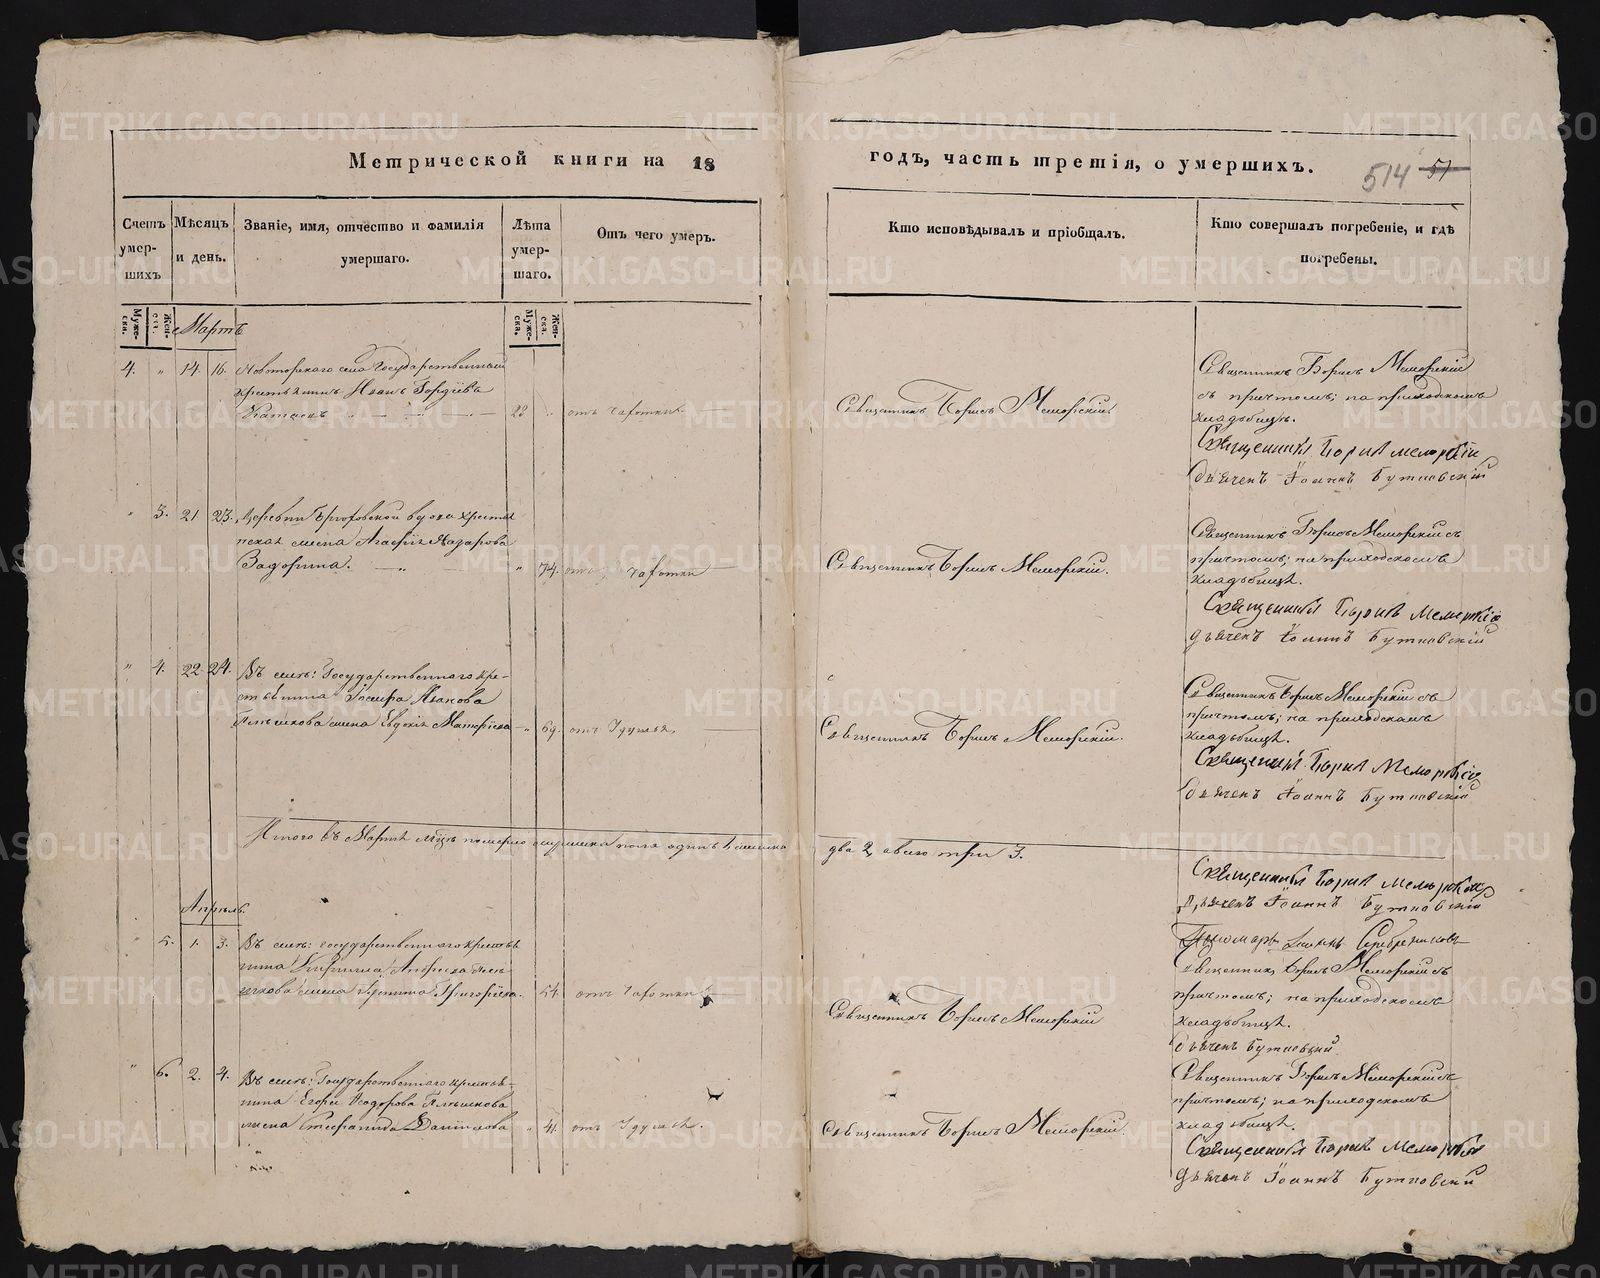 Метрической книги на 18
годъ, часть третія, о умершихъ.
514 51
Счетъ умер-шихъ
Мѣсяцъ и день.
Званіе, имя, отчество и фамилія умершаго.
Лѣта умер-шаго.
Отъ чего умеръ.
Кто исповѣдывалъ и пріобщалъ.
Кто совершалъ погребеніе, и гдѣ погребены.
Муже-ска.
Жен-ска.
Муже-ска.
Жен-ска.
Мартъ
4. „ 14. 16. села Государственный
крестьянинъ Иванъ Гордѣевъ
22 „ отъ чахотки.
Священникъ Борисъ Меморскій.
Священникъ Борисъ Меморскій
съ причтомъ; на приходскомъ
кладбищѣ.
Священникъ Борисъ Меморскій
дьячекъ Іоаннъ Бутковскій
„ 3. 21 23. Деревни вдова кресть
нская жена Агафія Назарова
Задорина. — „ — „ 74. отъ чахотки
Священникъ Борисъ Меморскій.
Священникъ Борисъ Меморскій съ
причтомъ; на приходскомъ
кладбищѣ.
Священникъ Борисъ Меморскій
дьячекъ Іоаннъ Бутковскій
„ 4. 22. 24. Въ селѣ: Государственнаго кре-
стьянина Іванова
жена Евдокія Матвѣева — „ 69. отъ удушья,
Священникъ Борисъ Меморскій.
Священникъ Борисъ Меморскій съ
причтомъ; на приходскомъ
кладбищѣ.
Священникъ Борисъ Меморскій
дьячекъ Іоаннъ Бутковскій
Итого въ Мартѣ мѣцѣ померло мужеска пола одинъ 1. женска два 2, обоего три 3.
Священникъ Борисъ Меморскій
Дьячекъ Іоаннъ Бутковскій
Пономарь Серебрениковъ
Апрѣль.
5. 1. 3. Въ селѣ: Государственнаго крестья
нина Кирилла Андреева
жена Григорьева. 54. отъ чахотки
Священникъ Борисъ Меморскій
Священникъ Борисъ Меморскій съ
причтомъ; на приходскомъ
кладбищѣ.
дьячекъ Бутковскій
„ 6. 2. 4. Въ селѣ: Государственнаго крестья-
нина Егора Ѳедорова
жена Стефанида Данилова „ 41. отъ удушья.
Священникъ Борисъ Меморскій.
Священникъ Борисъ Меморскій съ
причтомъ; на приходскомъ
кладбищѣ.
Священникъ Борисъ Меморскій
дьячекъ Іоаннъ Бутковскій
METRIKI.GASO-URAL.RU